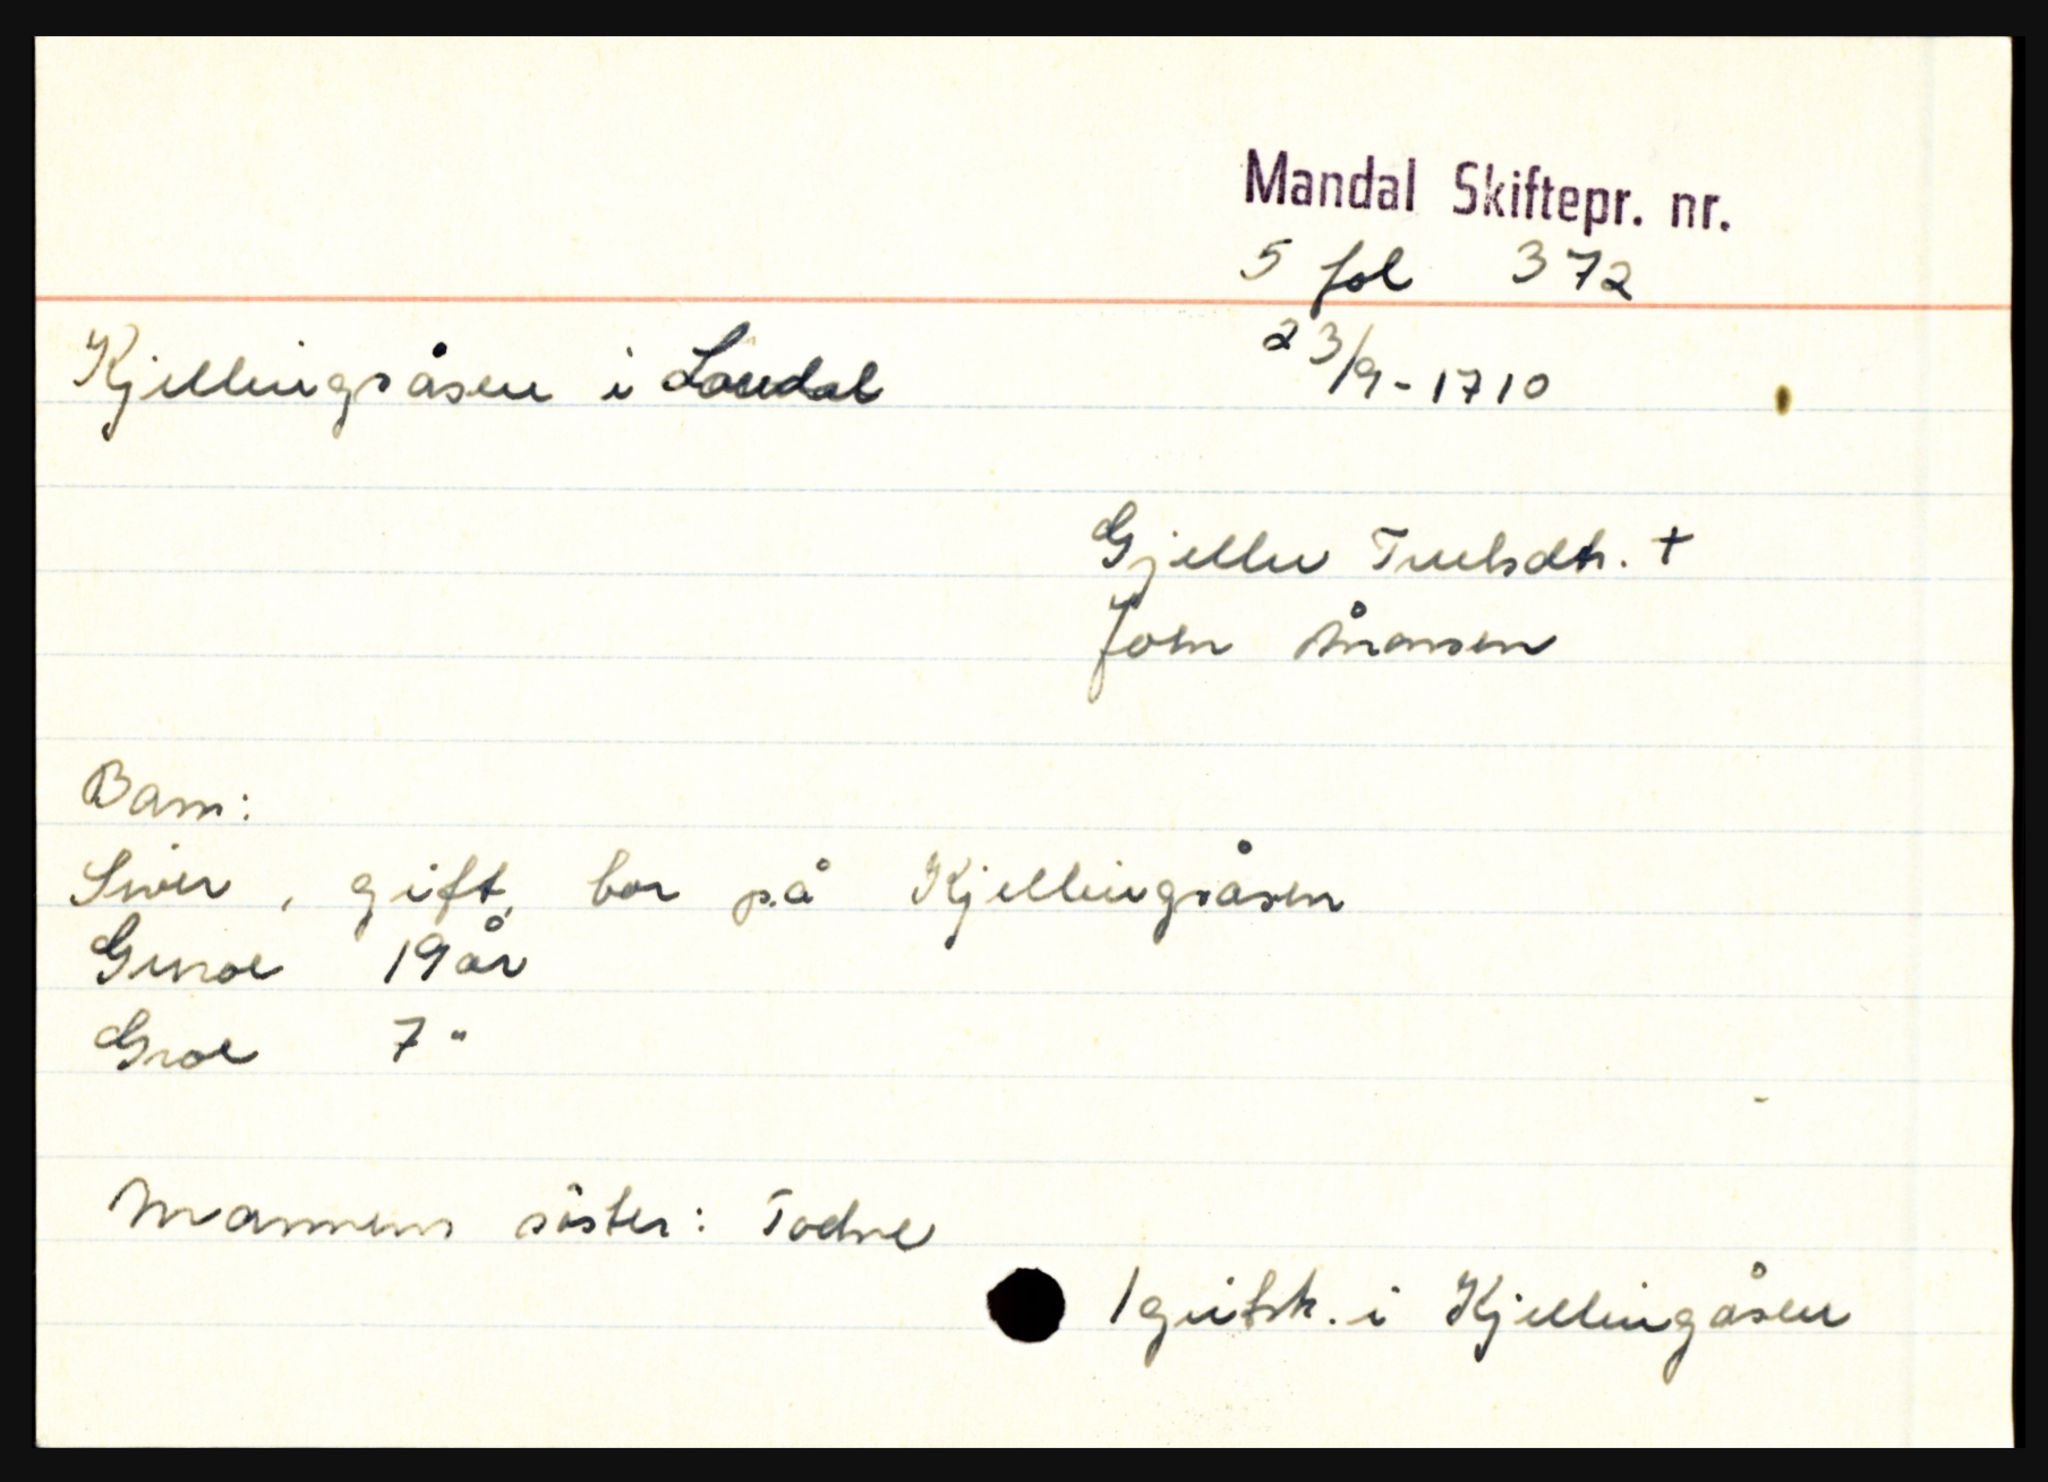 Mandal Skiftepr. nr.
5 fol 372
Kjellingsåsen i Laudal 23/9-1710
Gjellu Truelsdtr. +
John Månsen
Barn:
Siver, gift, bor på Kjellingsåsen
Gunoe 19 år
Groe 7 "
Mannens søster: Todne
1 geitsk. i Kjellingåsen